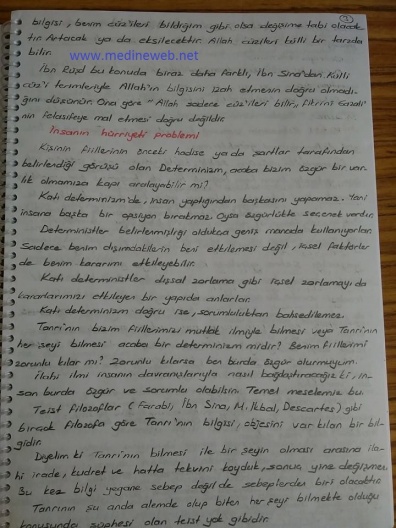 bilgisi, benim cüz'ileri bildiğim gibi olsa değişime tabi olacak
tır. Artacak ya da eksilecektir. Allah cüzileri külli bir tarzda
bilir.
www.medineweb.net
İbn Rüşd bu konuda biraz daha farklı, İbn Sina'dan. Külli
cüz'i terimleriyle Allah'ın bilgisini izah etmenin doğru olmadı-
ğını düşünür. Ona göre "Allah sadece cüz'ileri bilir" fikrini Gazali'
nin felasifeye mal etmesi doğru değildir.
İnsanın hürriyeti problemi
Kişinin fiillerinin önceki hadise ya da şartlar tarafından
belirlendiği görüşü olan Determinizm, acaba bizim özgür bir var
lık olmamıza kapı aralayabilir mi?
Katı determinizm'de, insan yaptığından başkasını yapamaz. Yani
insana başka bir opsiyon bırakmaz. Oysa özgürlükte seçenek vardır.
Deterministler belirlenmişliği oldukça geniş manada kullanıyorlar.
Sadece benim dışımdakilerin beni etkilemesi değil, içsel faktörler
de benim kararımı etkileyebilir.
Katı deterministler dışsal zorlama gibi içsel zorlamayı da
kararlarımızı etkileyen bir yapıda anlarlar.
Katı determinizm doğru ise, sorumluluktan bahsedilemez.
Tanrı'nın bizim fiillerimizi mutlak ilmiyle bilmesi veya Tanrı'nın
her şeyi bilmesi acaba bir determinizm midir? Benim fiillerimi
zorunlu kılar mı? Zorunlu kılarsa ben burda özgür olurmuyum.
İlahi ilmi insanın davranışlarıyla nasıl bağdaştıracağız ki, in-
san burda özgür ve sorumlu olabilsin. Temel meselemiz bu.
Teist filozoflar (Farabi, İbn Sina, M. İkbal, Descartes) gibi
birçok filozofa göre Tanrı'nın bilgisi, objesini var kılan bir bil-
gidir.
Diyelim ki Tanrı'nın bilmesi ile bir şeyin olması arasına ila-
hi irade, kudret ve hatta tekvini koyduk, sonuç yine değişmez.
Bu kez bilgi yegane sebep değil de sebeplerden biri olacaktır.
Tanrının şu anda alemde olup biten her şeyi bilmekte olduğu
konusunda şüphesi olan teist yok gibidir.